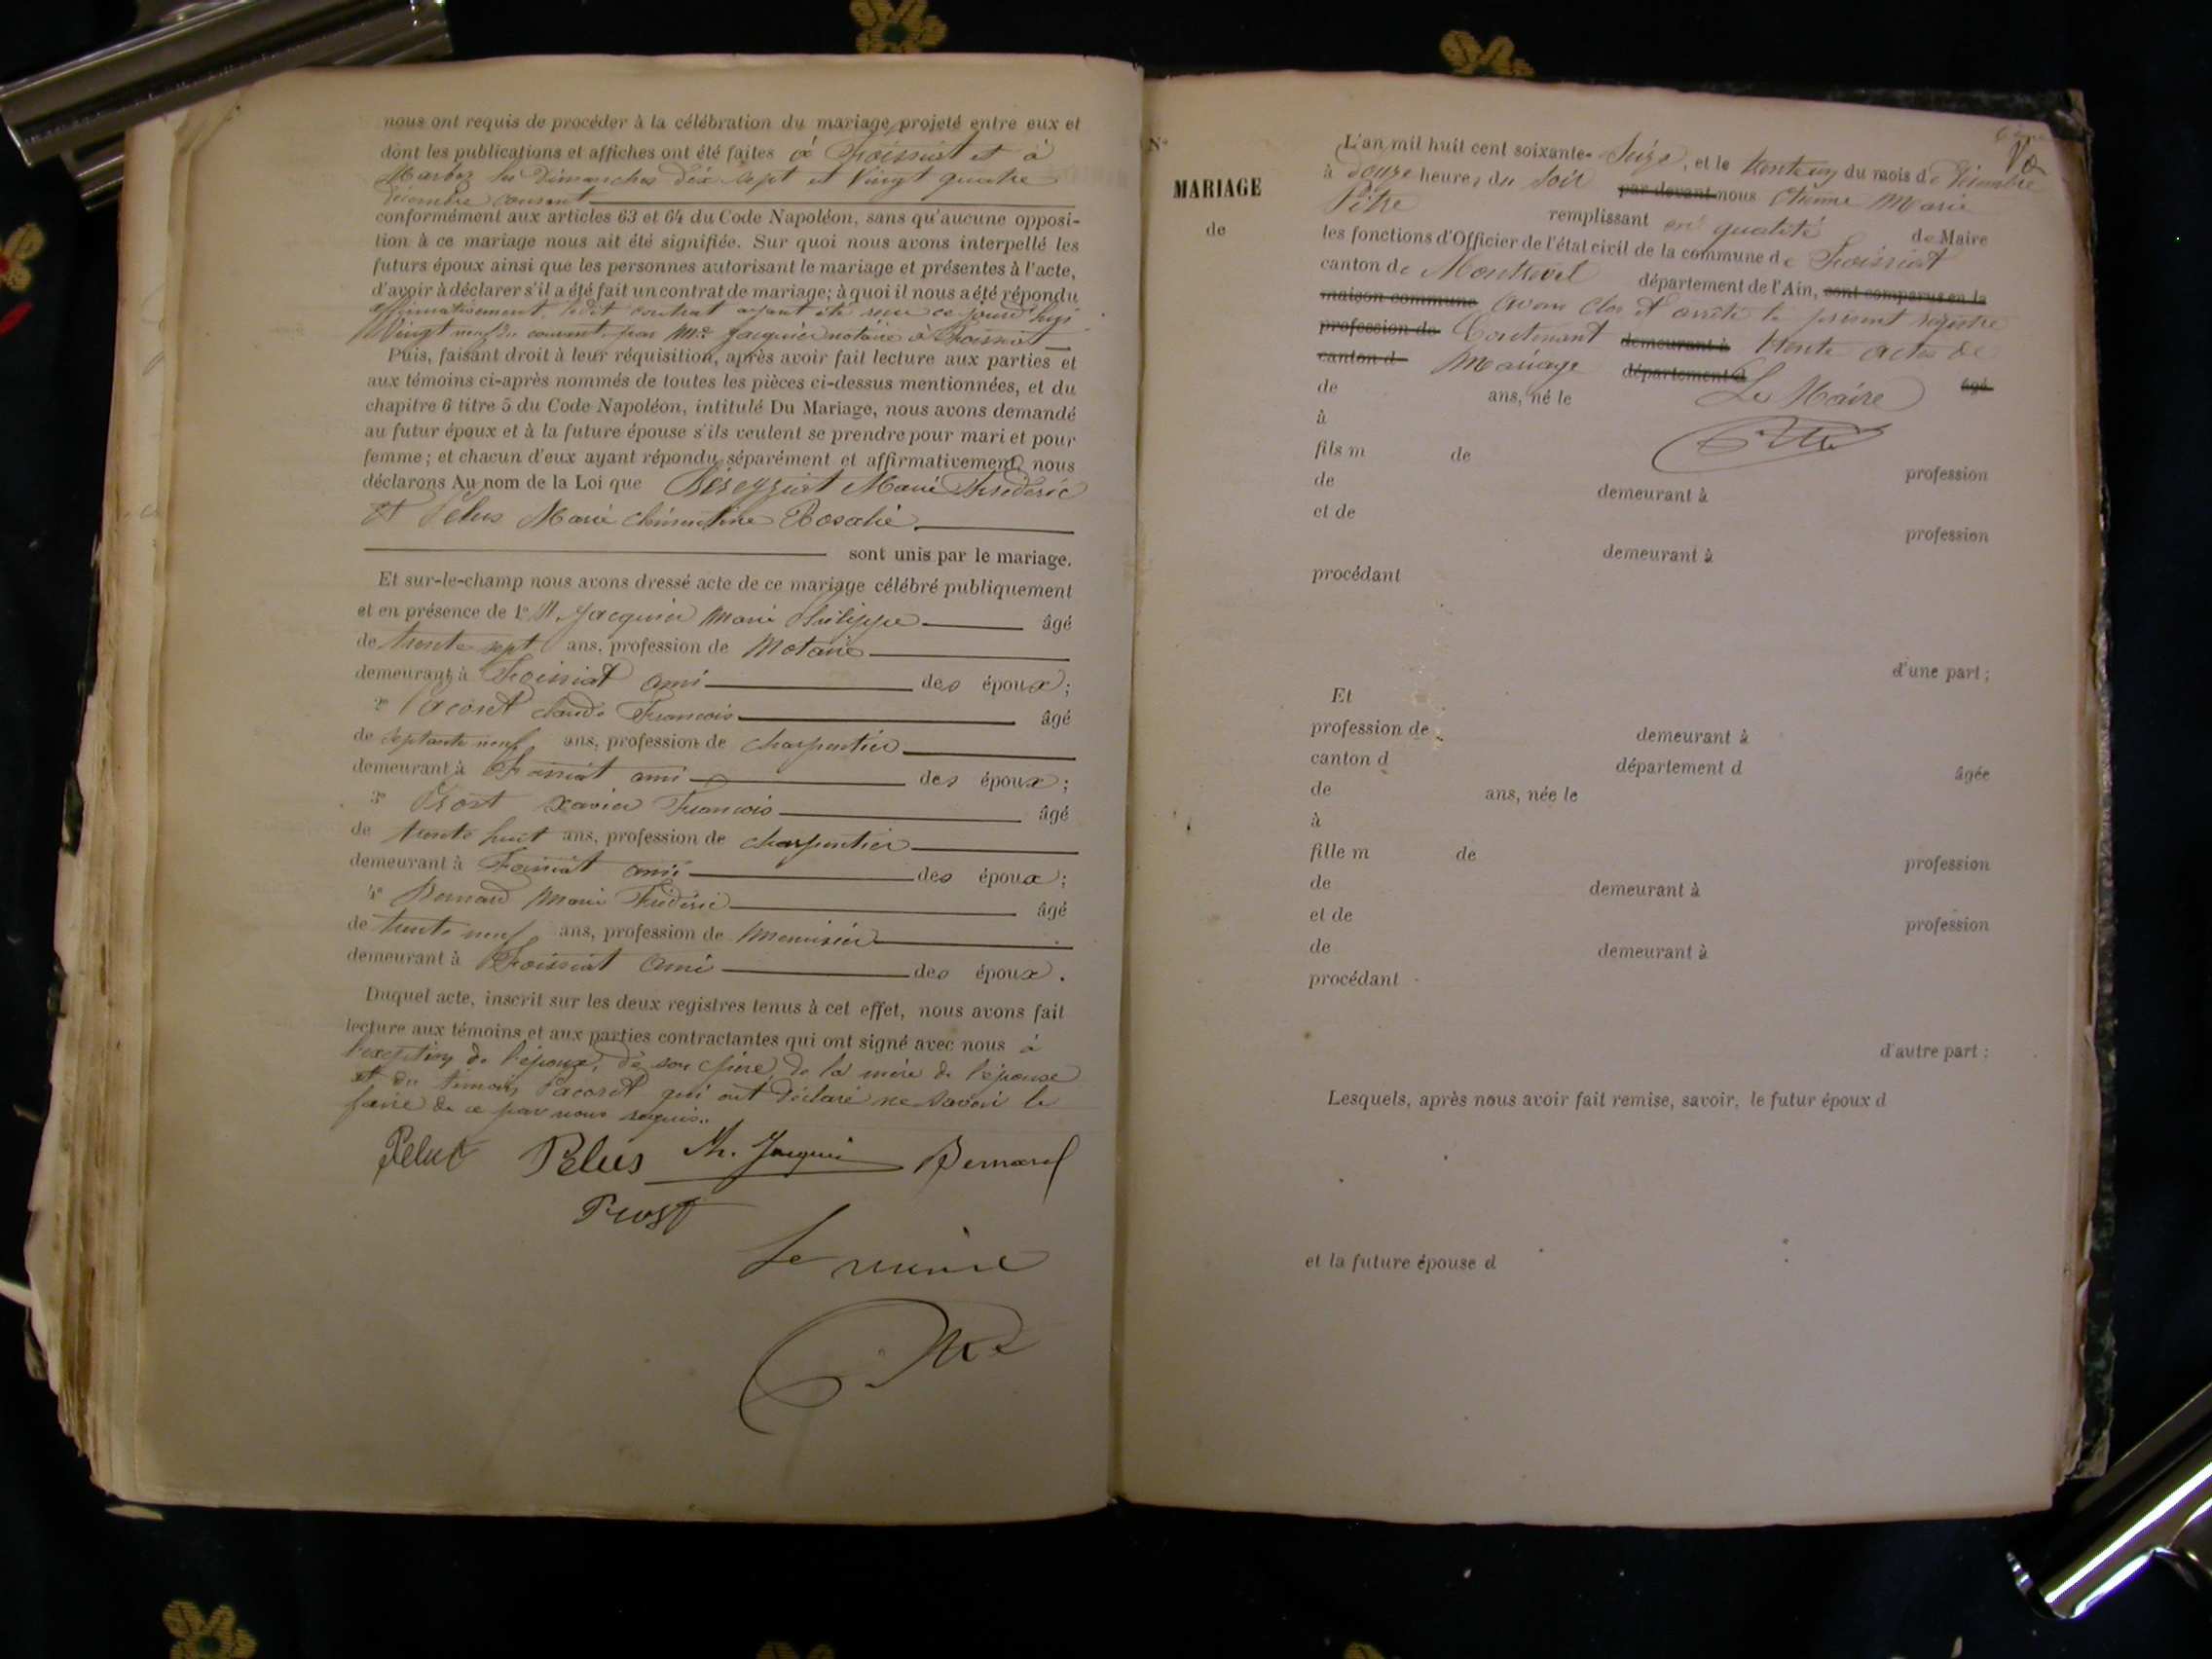 nous ont requis de procéder à la célébration du mariage projeté entre eux et
dont les publications et affiches ont été faites à Foissiat et à
Marboz les Dimanches dix sept et Vingt quatre
décembre courant
conformément aux articles 63 et 64 du Code Napoléon, sans qu'aucune opposi-
tion à ce mariage nous ait été signifiée. Sur quoi nous avons interpellé les
futurs époux ainsi que les personnes autorisant le mariage et présentes à l'acte,
d'avoir à déclarer s'il a été fait un contrat de mariage; à quoi il nous a été répondu
affirmativement, ledit contrat ayant été reçu ce jourd'hui
Vingt neuf du courant par Me Jacquier notaire à Foissiat
Puis, faisant droit à leur réquisition, après avoir fait lecture aux parties et
aux témoins ci-après nommés de toutes les pièces ci-dessus mentionnées, et du
chapitre 6 titre 5 du Code Napoléon, intitulé Du Mariage, nous avons demandé
au futur époux et à la future épouse s'ils veulent se prendre pour mari et pour
femme; et chacun d'eux ayant répondu séparément et affirmativement nous
déclarons Au nom de la Loi que Béreyziat Marie Frédéric
Et Pelus Marie Clémentine Rosalie
sont unis par le mariage.
Et sur-le-champ nous avons dressé acte de ce mariage célébré publiquement
et en présence de 1° M. Jacquier Marie Philippe âgé
de trente sept ans, profession de Notaire
demeurant à Foissiat ami des époux;
2° Pacoret Claude François âgé
de septante neuf ans, profession de charpentier
demeurant à Foissiat ami des époux;
3° Prost Xavier François âgé
de trente huit ans, profession de charpentier
demeurant à Foissiat ami des époux;
4° Bernard Marie Frédéric âgé
de trente neuf ans, profession de Menuisier
demeurant à Foissiat ami des époux.
Duquel acte, inscrit sur les deux registres tenus à cet effet, nous avons fait
lecture aux témoins et aux parties contractantes qui ont signé avec nous à
l'exception de l'époux, de son père, de la mère de l'épouse
et du témoin Pacoret qui ont déclaré ne savoir le
faire de ce par nous requis.
Pelus Pelus Ph. Jacquier Bernard
Prost
Le maire
Pitre
N°
MARIAGE
de
L'an mil huit cent soixante-Seize, et le trente un du mois de Décembre
à douze heures du soir par devant nous Etienne Marie
Pitre remplissant en qualité de Maire
les fonctions d'Officier de l'état civil de la commune de Foissiat
canton de Montrevel département de l'Ain, sont comparus en la
maison commune avons clos et arrêté le présent registre
profession de Contenant demeurant à trente actes de
canton d Mariage département d
de ans, né le Le Maire âgé
à
Pitre
fils m de profession
de demeurant à
et de profession
demeurant à
procédant
d'une part;
Et
profession de demeurant à
canton d département d âgée
de ans, née le
à
fille m de profession
de demeurant à
et de profession
de demeurant à
procédant
d'autre part:
Lesquels, après nous avoir fait remise, savoir, le futur époux d
et la future épouse d